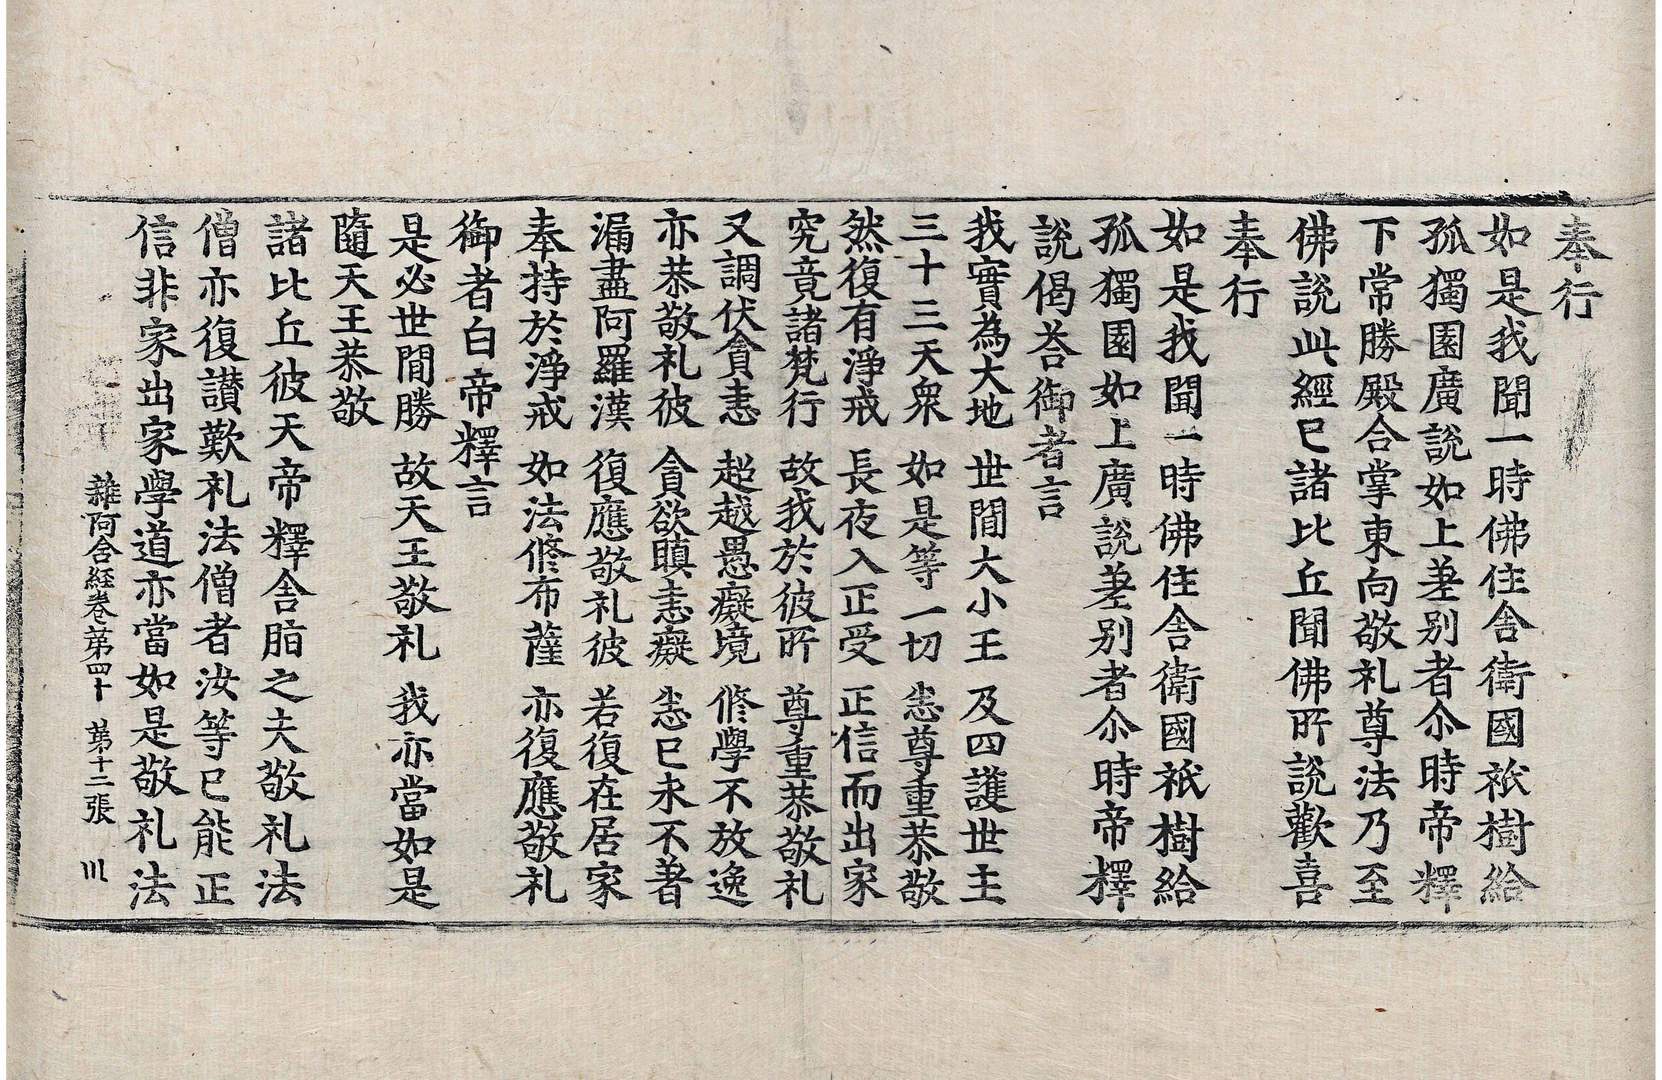 奉行
如是我聞一時佛住舍衛國祇樹給
孤獨園廣說如上差別者尒時帝釋
下常勝殿合掌東向敬礼尊法乃至
佛說此經已諸比丘聞佛所說歡喜
奉行
如是我聞一時佛住舍衛國祇樹給
孤獨園如上廣說差別者尒時帝釋
說偈荅御者言
我實為大地 世間大小王 及四護世主
三十三天衆 如是等一切 悉尊重恭敬
然復有淨戒 長夜入正受 正信而出家
究竟諸梵行 故我於彼所 尊重恭敬礼
又調伏貪恚 超越愚癡境 修學不放逸
亦恭敬礼彼 貪欲瞋恚癡 悉已永不著
漏盡阿羅漢 復應敬礼彼 若復在居家
奉持於淨戒 如法修布薩 亦復應敬礼
御者白帝釋言
是必世間勝 故天王敬礼 我亦當如是
隨天王恭敬
諸比丘彼天帝釋舍脂之夫敬礼法
僧亦復讃歎礼法僧者汝等已能正
信非家出家學道亦當如是敬礼法
雜阿含經卷第四十 第十二張 川